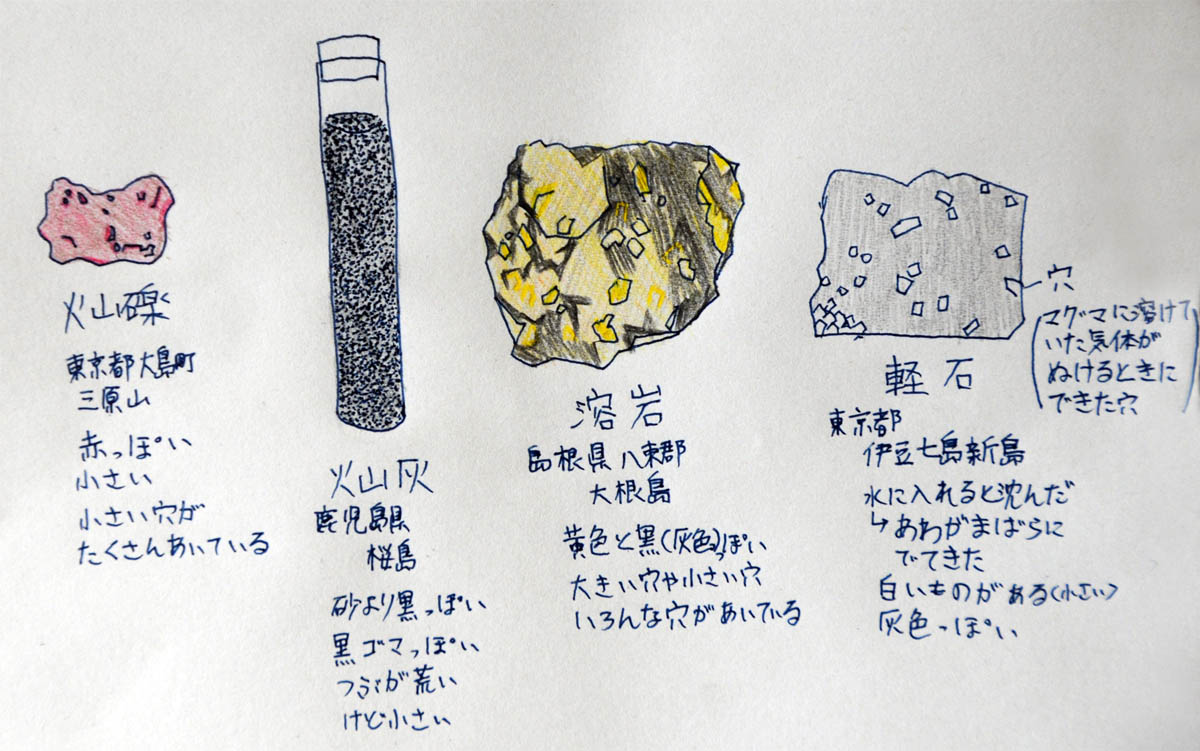 火山礫
東京都大島町
三原山
赤っぽい
小さい
小さい穴が
たくさんあいている
火山灰
鹿児島県
桜島
砂より黒っぽい
黒ゴマっぽい
つぶが荒い
けど小さい
溶岩
島根県八束郡
大根島
黄色と黒(灰色)っぽい
大きい穴や小さい穴
いろんな穴があいている
軽石
東京都
伊豆七島新島
水に入れると沈んだ
↳あわがまばらに
でてきた
白いものがある(小さい)
灰色っぽい
穴
(マグマに溶けて
いた気体が
ぬけるときに
できた穴)